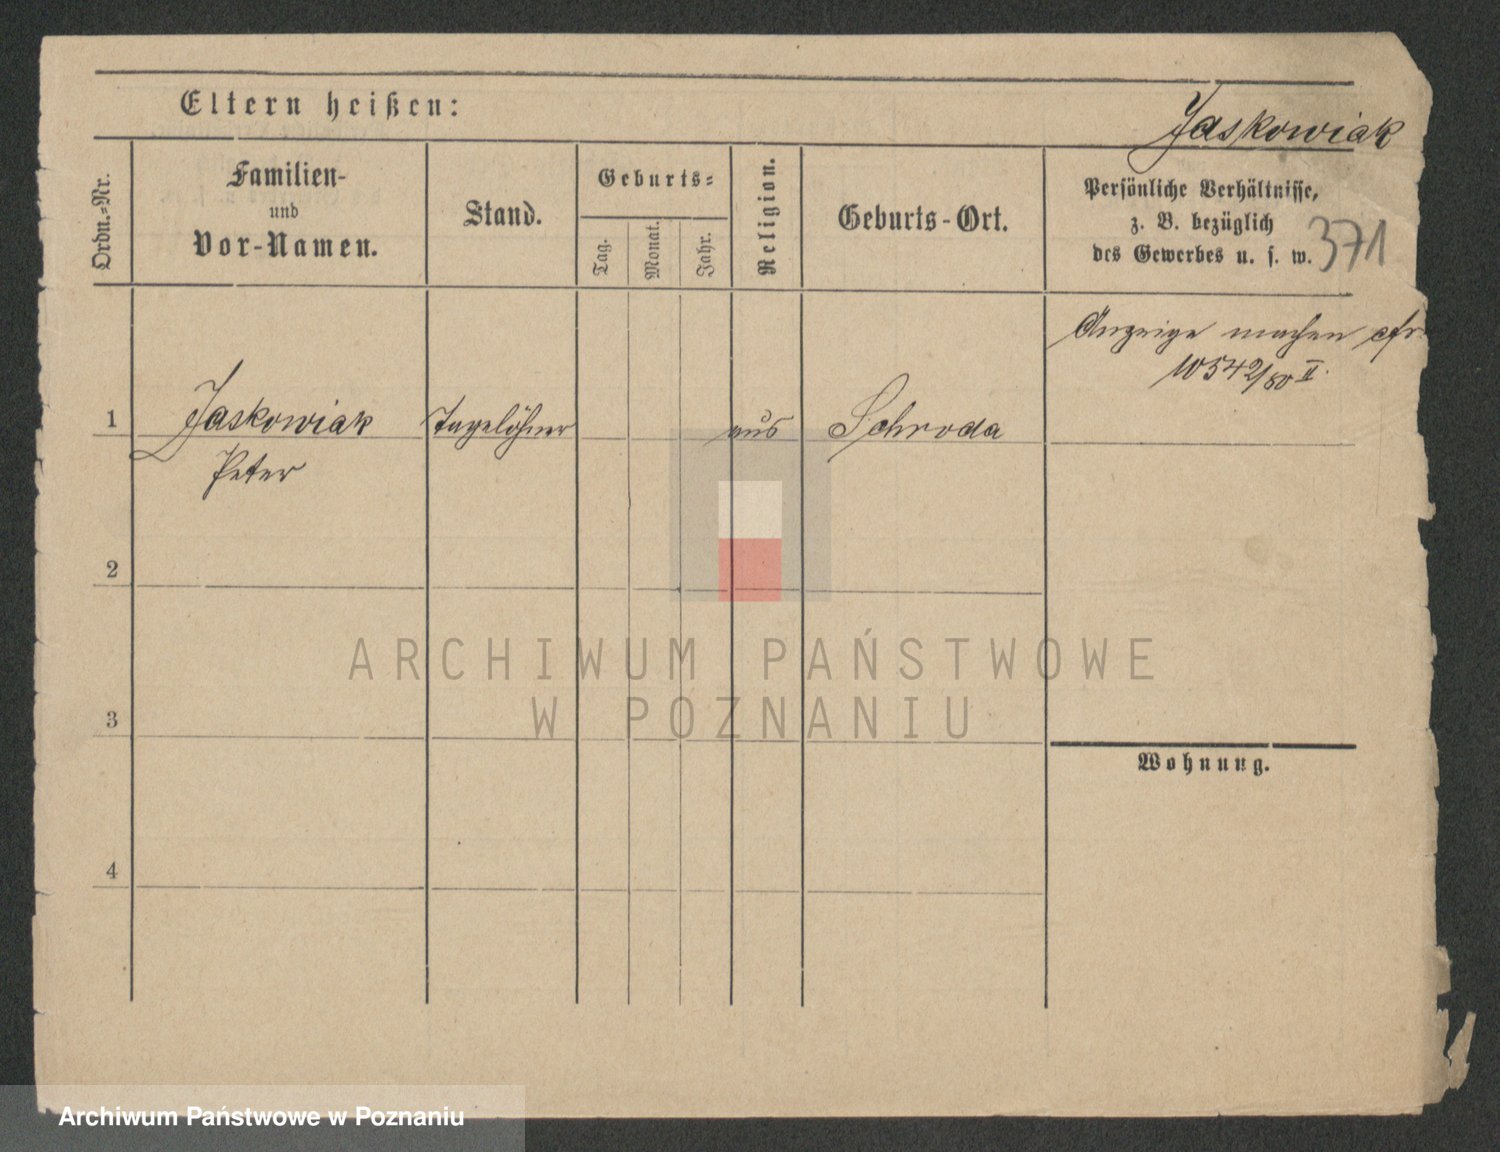 Eltern heißen:
Jaskowiak
Ordn.=Nr.
Familien-
und
Vor-Namen.
Stand.
Geburts=
Tag.
Monat.
Jahr.
Religion.
Geburts-Ort.
Persönliche Verhältnisse,
z. B. bezüglich
des Gewerbes u. s. w.
371
Anzeige machen cfr
10542/80 II.
1 Jaskowiak Tagelöhner aus Schroda
Peter
2
3
4
Wohnung.
ARCHIWUM PAŃSTWOWE
W POZNANIU
Archiwum Państwowe w Poznaniu